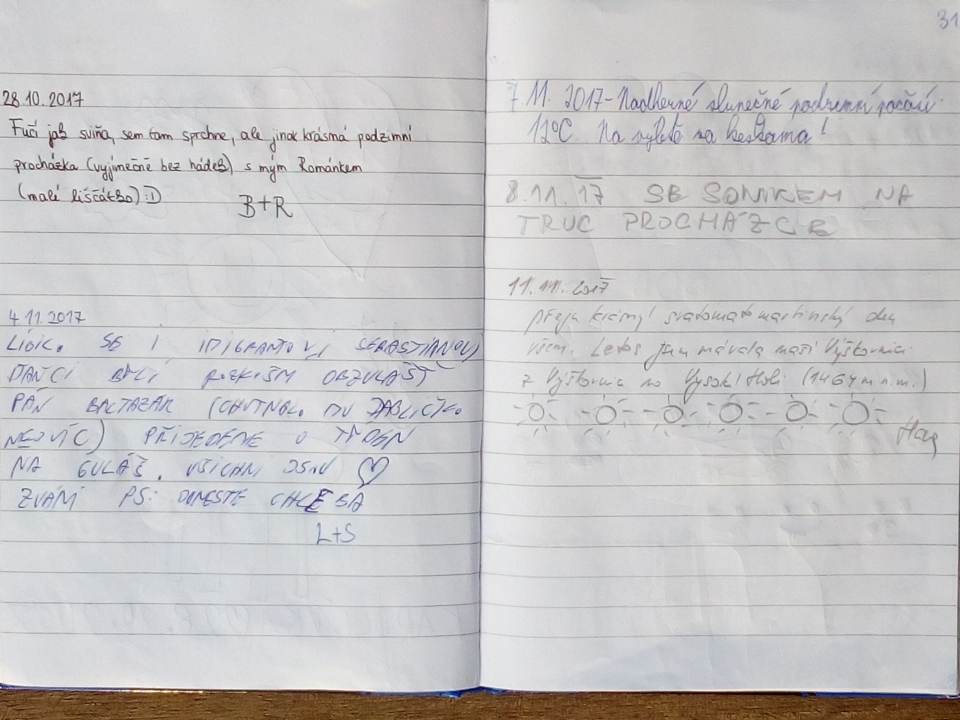 28.10.2017
Fučí jak sviňa, sem tam sprchne, ale jinak krásná podzimní
procházka (vyjímečně bez hádek) s mým Románkem
(malé liščátko) :D
B+R
4.11.2017
LÍBILO SE I IMIGRANTOVI SEBASTIÁNOVI
DAŇCI BYLI ROZKOŠNÍ OBZVLÁŠŤ
PAN BALTAZAR (CHUTNALO MU JABLÍČKO
NEJVÍC) PŘIJEDEME O TÝDEN
NA GULÁŠ. VŠICHNI JSOU
ZVÁNÍ PS: DONESTE CHLEBA
L+S
31
7.11. 2017 - Nádherné slunečné podzimní počasí
12°C. Na výletě za keškama!
8.11.17 SE SONIKEM NA
TRUC PROCHÁZCE
11.11.2017
přeju krásný svatomartinský den
všem. Letos jsem
z na Vysoké Holi (1464 m n.m.)